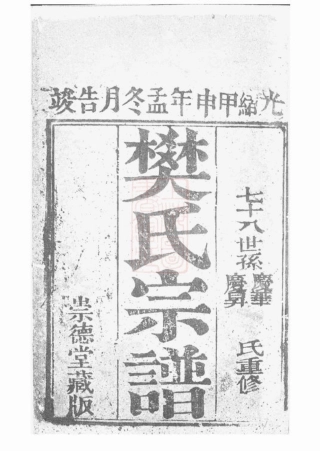 光緒甲申年孟冬月告竣
七十八世孫 慶華 慶昇 氏重修
樊氏宗譜
崇德堂藏版